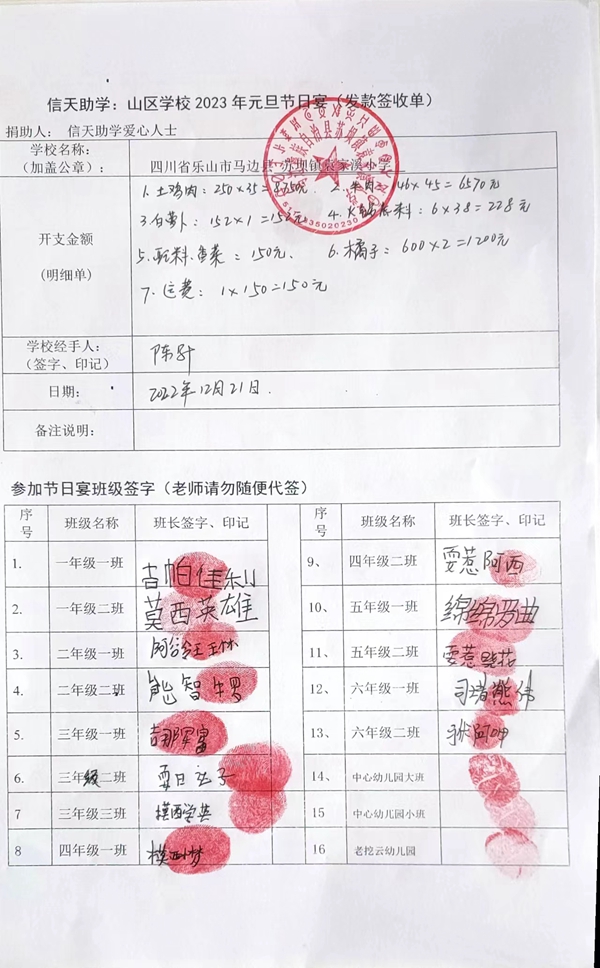 信天助学：山区学校2023年元旦节日宴（发款签收单）
捐助人： 信天助学爱心人士
学校名称：
（加盖公章）： 四川省乐山市马边县 苏坝镇袁家溪小学
开支金额
(明细单)
1.土鸡肉：250×35=8750元 2.牛肉：146×45=6570元
3.白萝卜：152×1=152元 4.火锅底料：6×38=228元
5.配料.香菜：150元. 6.橘子：600×2=1200元
7.运费：1×150=150元
学校经手人：
（签字、印记） 陈
日期： 2022年12月21日.
备注说明：
参加节日宴班级签字（老师请勿随便代签）
序号 班级名称 班长签字、印记 序号 班级名称 班长签字、印记
1. 一年级一班 吉帕佳
9、 四年级二班 耍惹阿西
2. 一年级二班 莫西英雄
10、 五年级一班 绵绵罗曲
3. 二年级一班
11、 五年级二班 耍惹
4. 二年级二班 能智
12、 六年级一班 熊伟
5. 三年级一班 吉那
13、 六年级二班 阿呷
6. 三年级二班 耍日
14、 中心幼儿园大班
7 三年级三班 模西学英
15 中心幼儿园小班
8 四年级一班 模西小梦
16 老挖云幼儿园